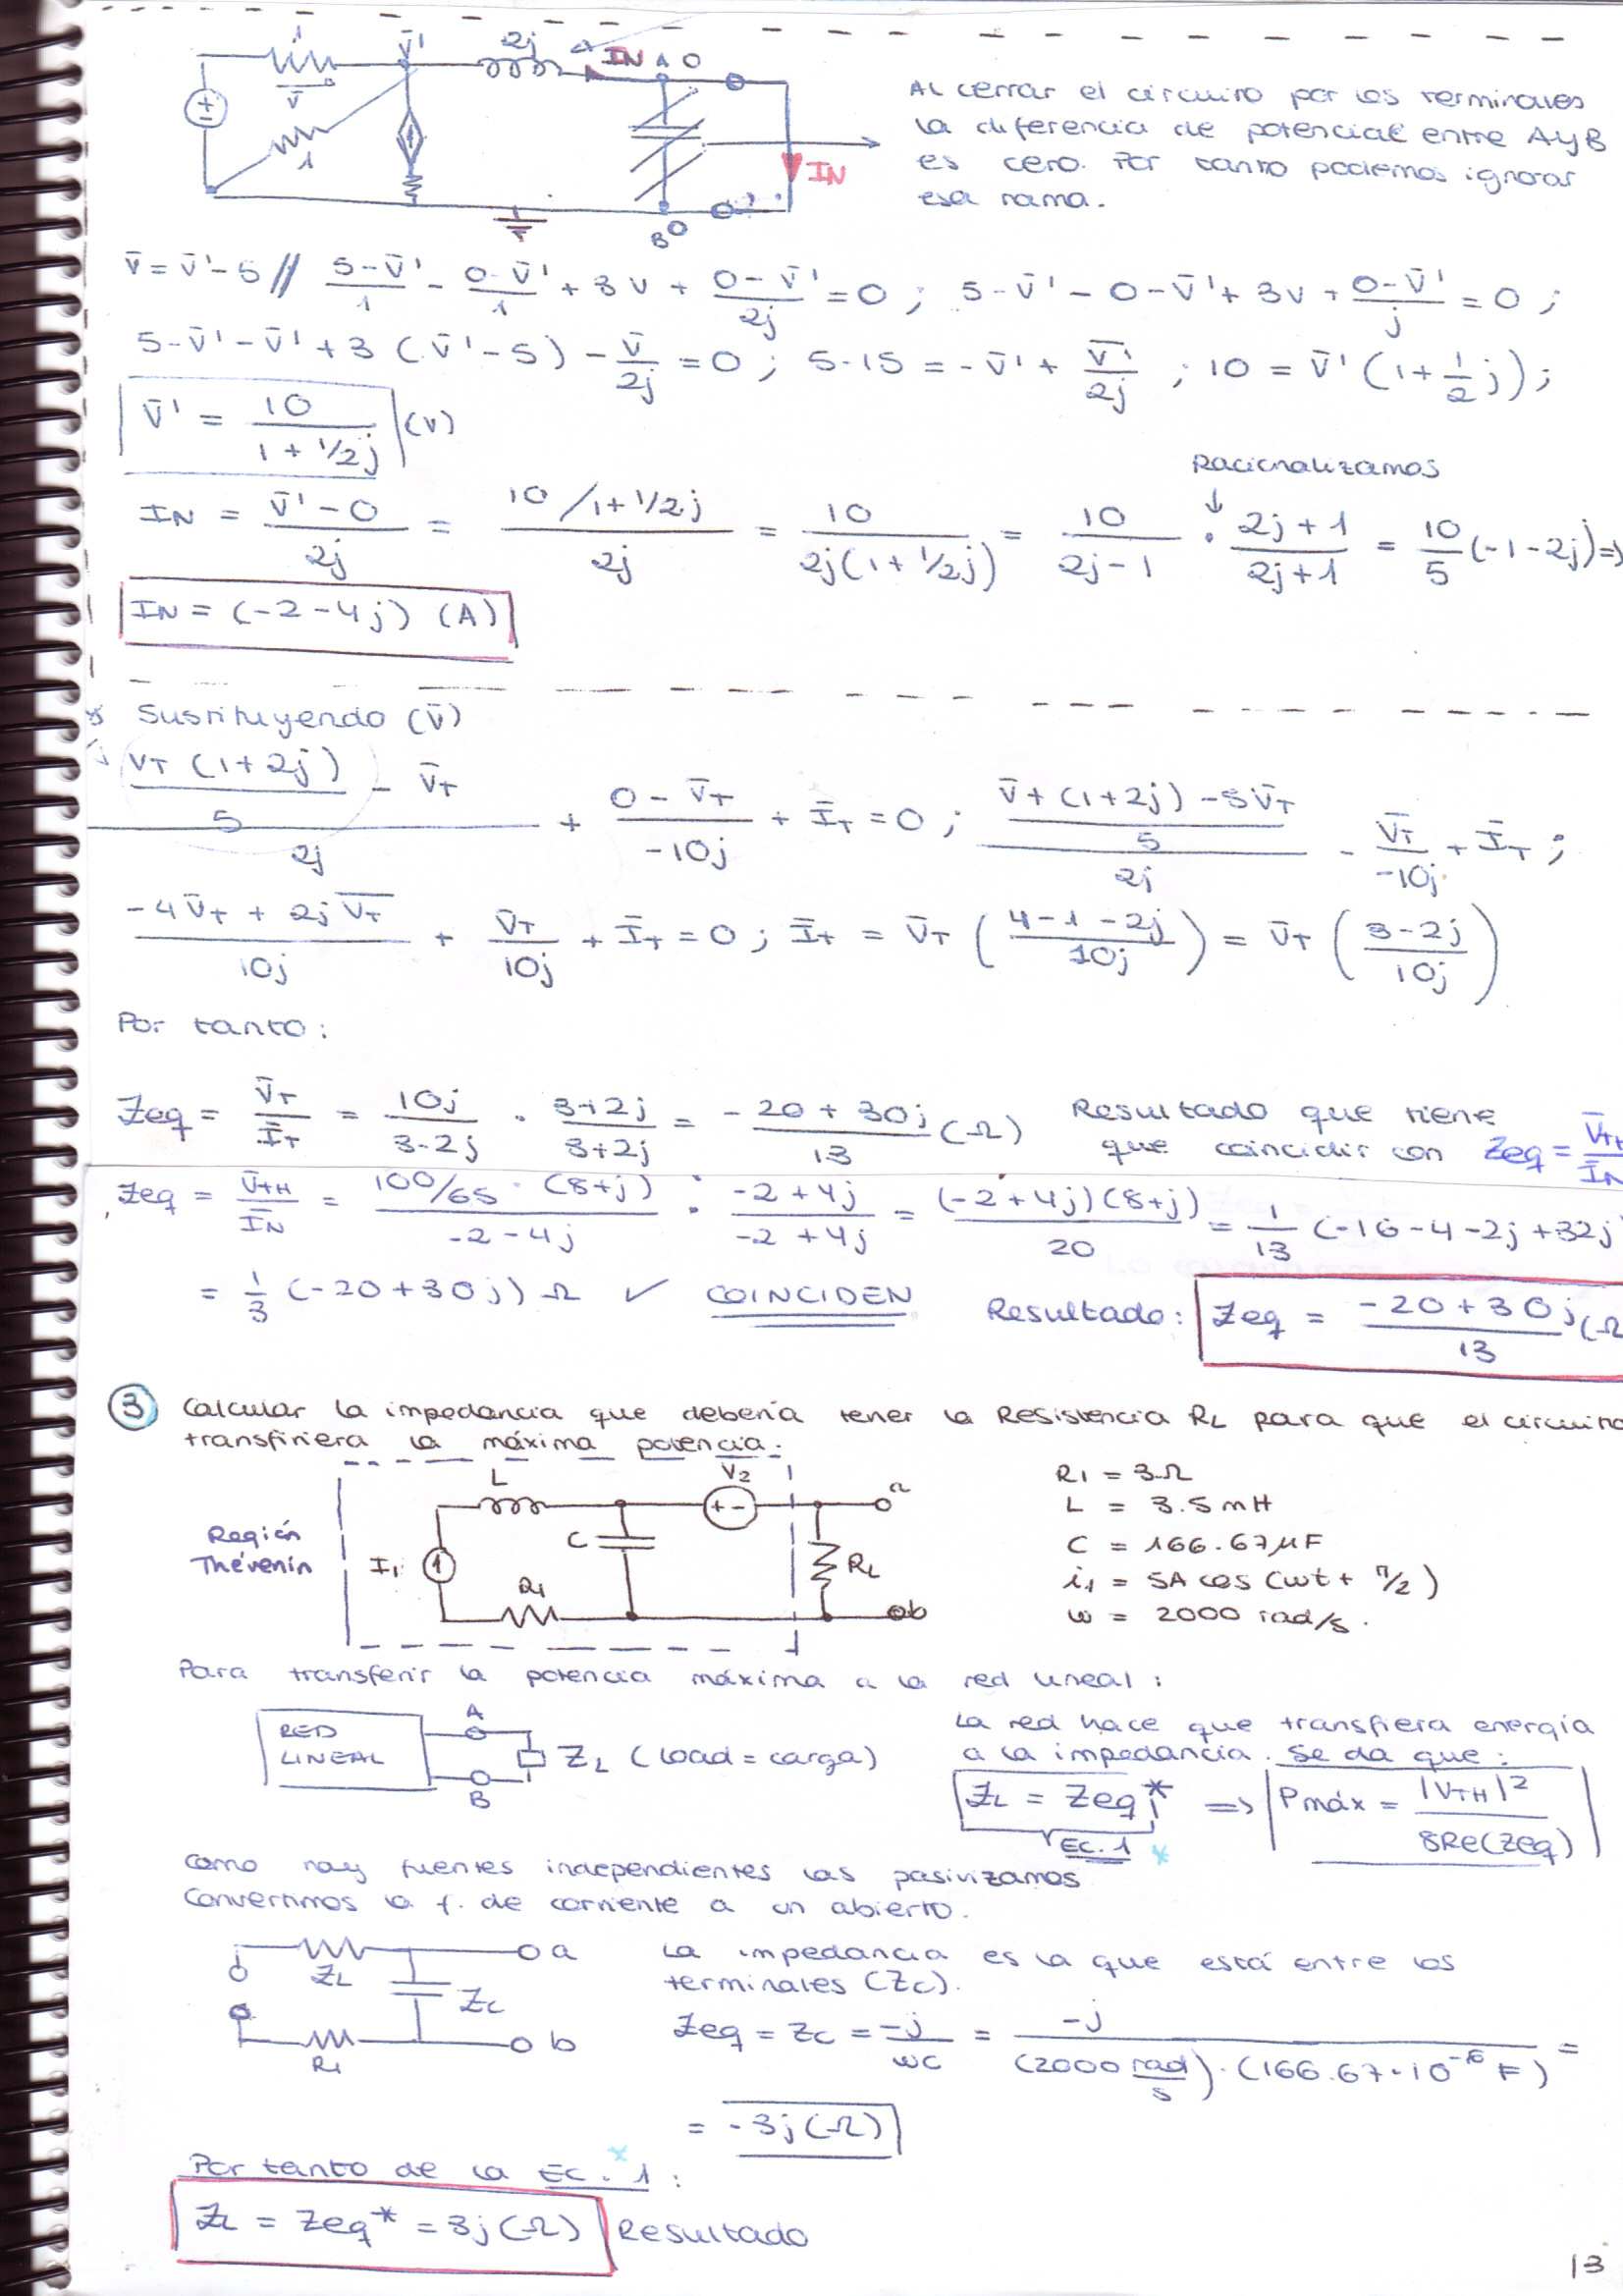 1
V̄'
2j
IN
A
O
V̄
1
IN
B
O
Al cerrar el circuito por los terminales
la diferencia de potencial entre A y B
es cero. Por tanto podemos ignorar
esa rama.
V̄ = V̄' - 5 // (5-V̄')/1 - (0-V̄')/1 + 3V + (0-V̄')/2j = 0 ; 5 - V̄' - 0 - V̄' + 3V + (0-V̄')/j = 0 ;
5 - V̄' - V̄' + 3 (V̄' - 5) - V̄/2j = 0 ; 5-15 = -V̄' + V̄'/2j ; 10 = V̄' (1 + 1/2 j) ;
V̄' = 10/(1 + 1/2j) (V)
Racionalizamos
IN = (V̄' - 0)/2j = (10/1+1/2j)/2j = 10/(2j(1+1/2j)) = 10/(2j-1) · (2j+1)/(2j+1) = 10/5 (-1-2j) =>
IN = (-2-4j) (A)
Sustituyendo (V̄)
((VT (1+2j))/5 - V̄T)/2j + (0 - V̄T)/-10j + ĪT = 0 ; ((V̄T (1+2j) - 5V̄T)/5)/2j - V̄T/-10j + ĪT ;
(-4V̄T + 2j V̄T)/10j + V̄T/10j + ĪT = 0 ; ĪT = V̄T ((4-1-2j)/10j) = V̄T ((3-2j)/10j)
Por tanto:
Zeq = V̄T/ĪT = 10j/(3-2j) · (3+2j)/(3+2j) = (-20+30j)/13 (Ω) Resultado que tiene
que coincidir con Zeq = V̄TH/ĪN
Zeq = V̄TH/ĪN = (100/65 · (8+j))/(-2-4j) · (-2+4j)/(-2+4j) = ((-2+4j)(8+j))/20 = 1/13 (-16-4-2j+32j)
= 1/3 (-20+30j) Ω ✓ COINCIDEN Resultado: Zeq = (-20+30j)/13 (Ω
3 Calcular la impedancia que debería tener la Resistencia RL para que el circuito
transfiriera la máxima potencia.
Región
Thévenin
L
V2
a
C
I1
RL
R1
b
R1 = 3Ω
L = 3.5 mH
C = 166.67 μF
i1 = 5A cos (ωt + π/2)
ω = 2000 rad/s.
Para transferir la potencia máxima a la red lineal:
RED
LINEAL
A
B
ZL (Load = carga)
La red hace que transfiera energía
a la impedancia. Se da que:
ZL = Zeq* => Pmáx = |VTH|²/8Re(Zeq)
EC. 1 *
Como hay fuentes independientes las pasivizamos
Convertimos la f. de corriente a un abierto.
a
ZL
Zc
R1
b
La impedancia es la que está entre los
terminales (Zc).
Zeq = Zc = -j/ωC = -j/((2000 rad/s) · (166.67·10⁻⁶ F)) =
= -3j (Ω)
Por tanto de la EC. 1 * :
ZL = Zeq* = 3j (Ω) Resultado
13